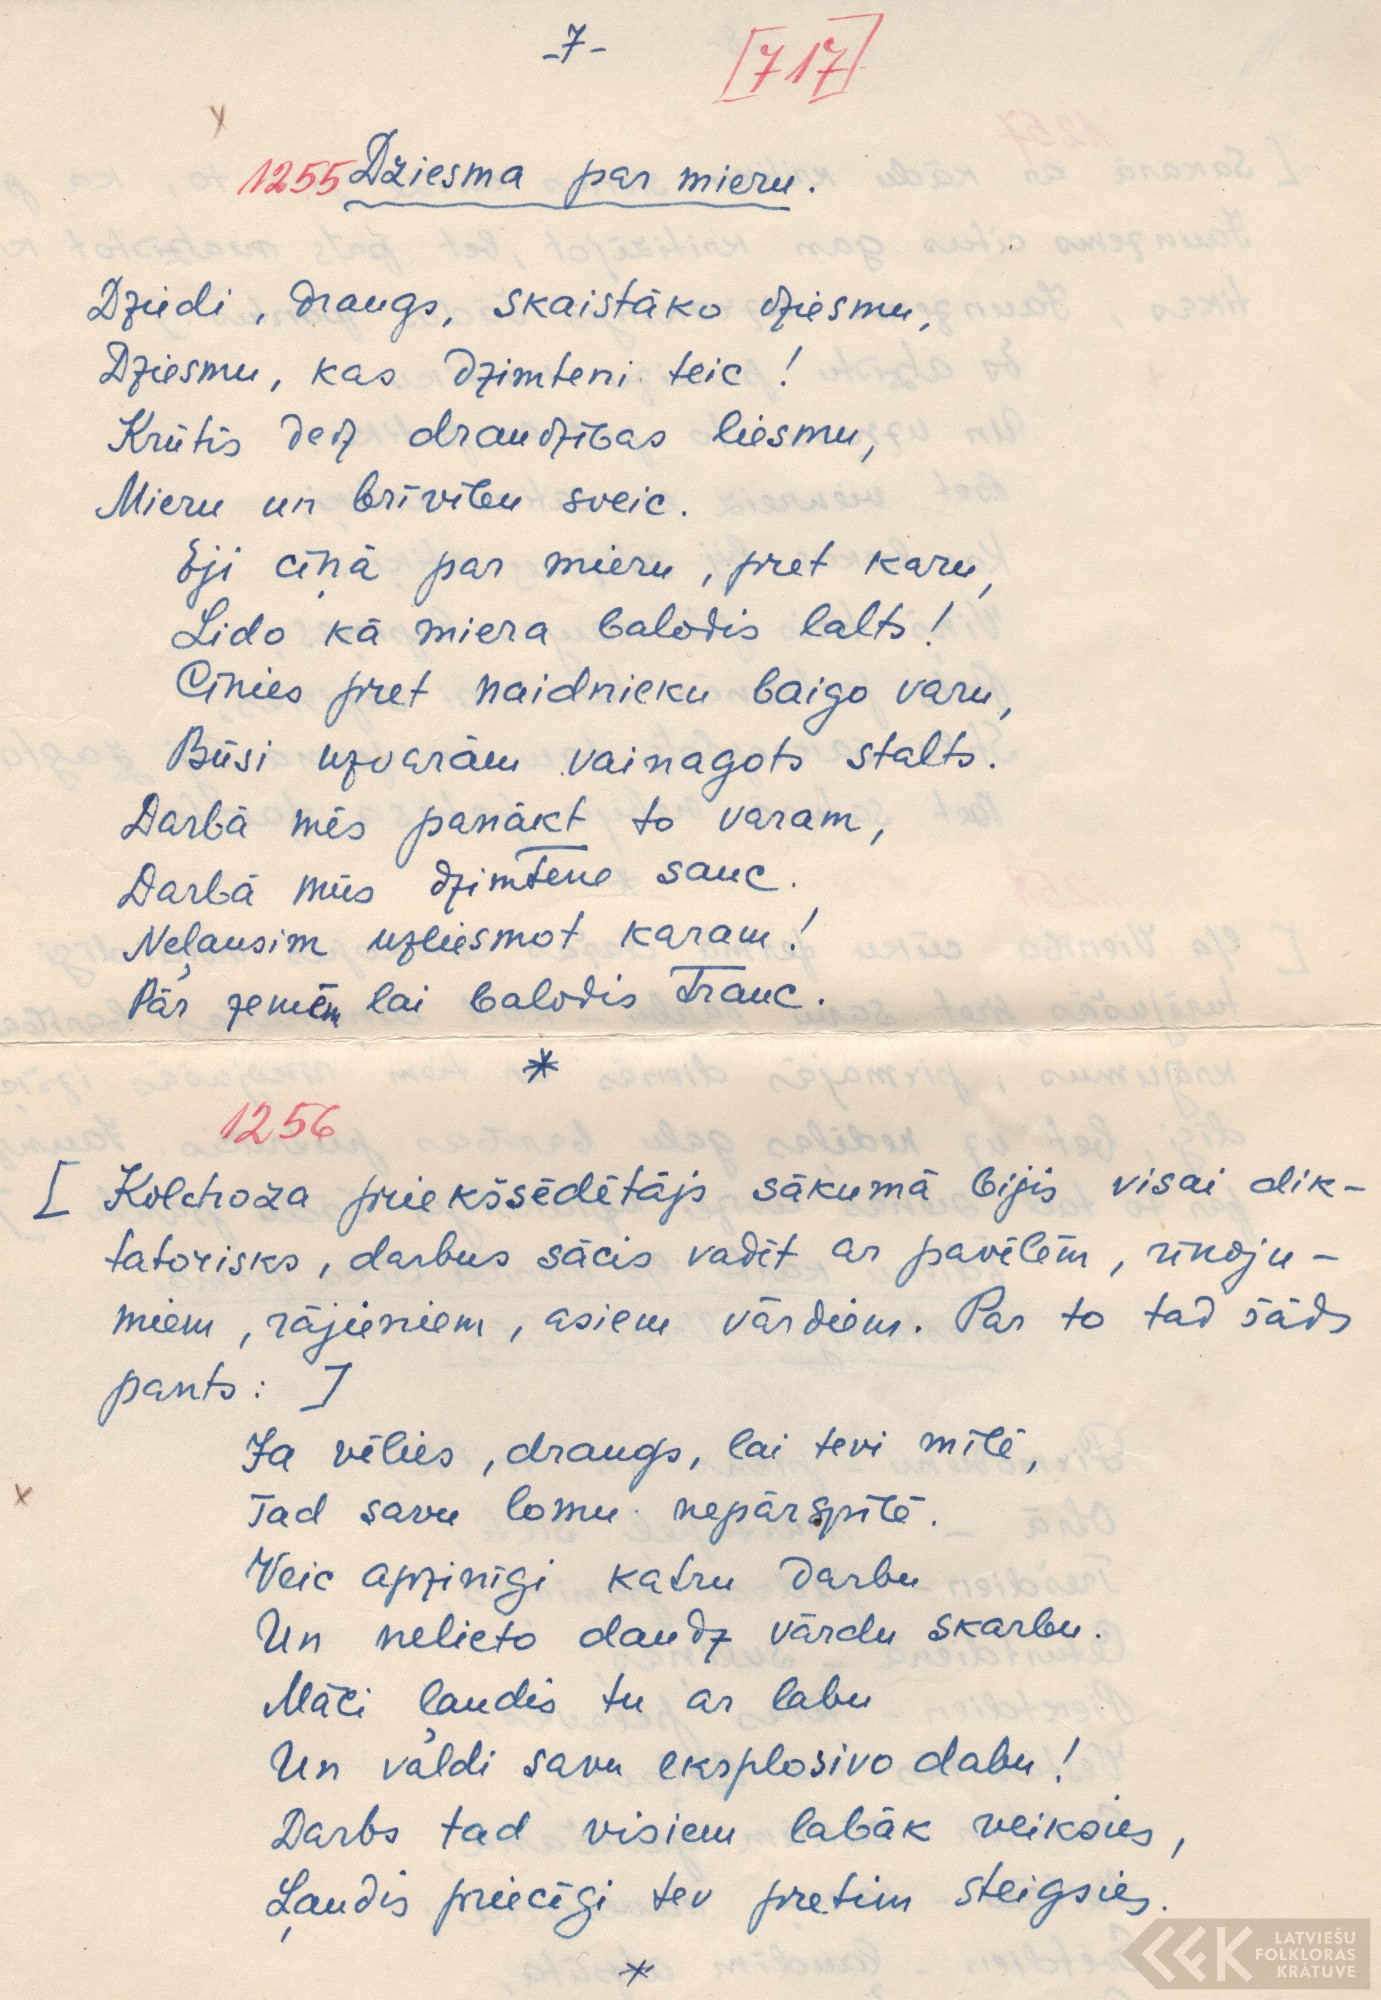 -7-
[717]
1255 Dziesma par mieru.
Dziedi, draugs, skaistāko dziesmu,
Dziesmu, kas dzimteni teic!
Krūtīs dedz draudzības liesmu,
Mieru un brīvību sveic.
Eji cīņā par mieru, pret karu,
Lido kā miera balodis balts!
Cīnies pret naidnieku baigo varu,
Būsi uzvarām vainagots stalts.
Darbā mēs panākt to varam,
Darbā mūs dzimtene sauc.
Neļausim uzliesmot karam!
Pār zemēm lai balodis trauc.
*
1256
[ Kolchoza priekšsēdētājs sākumā bijis visai dik-
tatorisks, darbus sācis vadīt ar pavēlēm, rīkoju-
miem, rājieniem, asiem vārdiem. Par to tad šāds
pants: ]
Ja vēlies, draugs, lai tevi mīlē,
Tad savu lomu nepārspīlē.
Veic apzinīgi katru darbu
Un nelieto daudz vārdu skarbu.
Māci ļaudis tu ar labu
Un valdi savu eksplosivo dabu!
Darbs tad visiem labāk veiksies,
Ļaudis priecīgi tev pretim steigsies.
*
LATVIEŠU
FOLKLORAS
KRĀTUVE